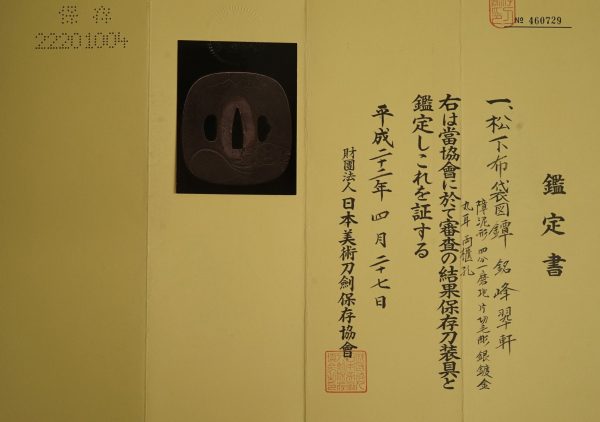 保存
22201004
№ 460729
鑑定書
一、松下布袋図鐔 銘 峰翠軒
障泥形 四分一磨地 片切毛彫 銀鍍金
丸耳 両櫃孔
右は當協會に於て審査の結果保存刀装具と
鑑定しこれを証する
平成二十二年四月二十七日
財團法人 日本美術刀劍保存協會